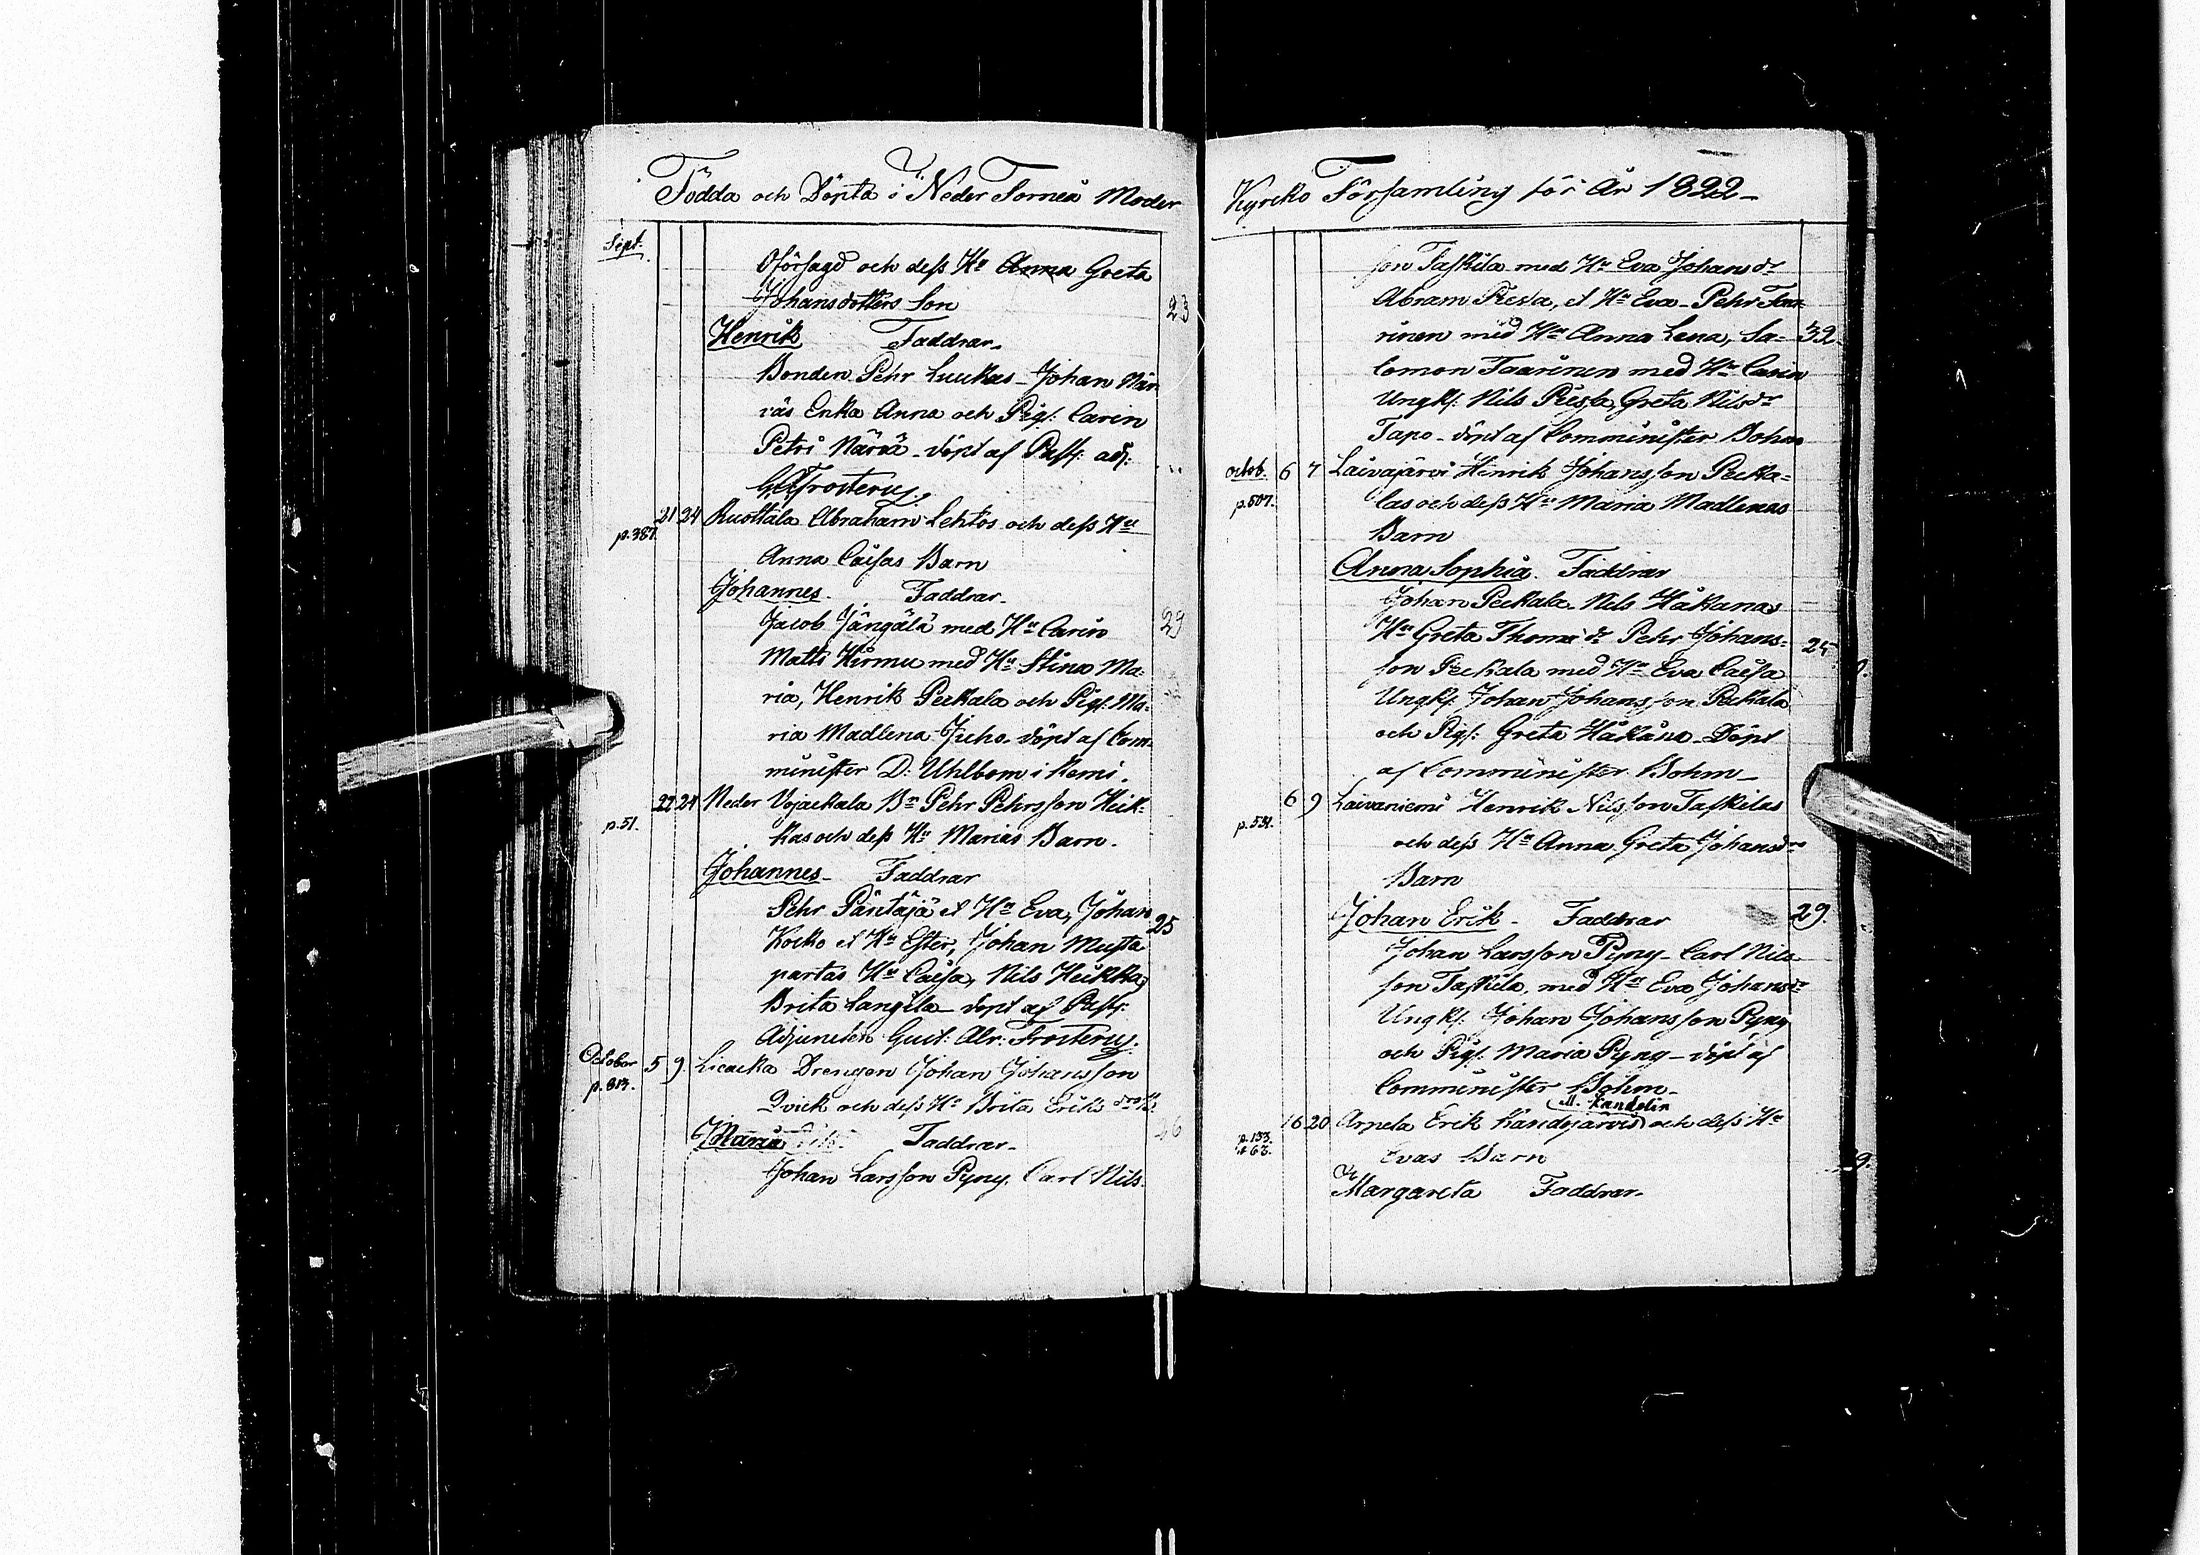 Födda och Döpta i Neder Torneå Moder
Sept.
Oförsagd och dess Hu Anna Greta
Johansdotters Son
23
Henrik Faddrar
Bonden Pehr Luukas Johan När
väs Enka Anna och Pig: Carin
Petri Närvä döpt af Past: adj:
G. A. Frosterus
p.387. 21 24 Ruottala Abraham Lehtos och dess Hu
Anna Caisas Barn
Johannes. Faddrar.
Jacob Jängälä med Hu Carin
29
Matts Hirmu med Hu Stina Ma-
ria, Henrik Peckala och Pig: Ma-
ria Madlena Juho döpt af Com-
minister D: Uhlbom i Kemi.
p.51. 22 24 Neder Vojackala Bn Pehr Pehrsson Heik-
kas och dess Hu Marias Barn.
Johannes Faddrar
Pehr Päntäjä et Hu Eva, Johan
25
Kocko et Hu Ester, Johan Musta
partas Hu Caisa, Nils Heikka
Brita Langila döpt af Past:
Adjuncten Gust: Abr: Frosterus.
October 5 9 Liacka Drengen Johan Johansson
p.813.
Qvick och dess Hu Brita Eriks
Maria Faddrar
26
Johan Larsson Pyny. Carl Nils-
Kyrcko Församling för År 1822
son Taskila med Hu Eva Johansdr
Abram et Hu Eva Pehr Taa
rinen med Hu Anna Lena, Sa-
32
lomon Taarinen med Hu Carin
Ungk: Nils Greta Nilsdr
Tapo döpt af Comminister Bohm
octob. 6 7 Laivajärvi Hinrik Johansson Pecka-
p.507.
las och dess Hu Maria Madlenas
Barn
Anna Sophia. Faddrar
Johan Peckala. Nils Håkanas
Hu Greta Thomædr Pehr Johans-
24
son Peckala med Hu Eva Caisa
Ungk: Johan Johansson Peckala
och Pig: Greta Håkana Döpt
af Comminister Bohm
6 9 Laivaniemi Henrik Nilsson Taskilas
p.531.
och dess Hu Anna Greta Johansdrs
Barn
Johan Erik Faddrar
29.
Johan Larsson Pyny Carl Nils
son Taskila, med Hu Eva Johansdr
Ungk: Johan Johansson Pyny
och Pig: Maria Pyny döpt af
Comminister Bohm
M. Kandelin
p.133. 16 20 Arpela Erik Kandejärvis och dess Hu
463.
Evas Barn
Margareta Faddrar